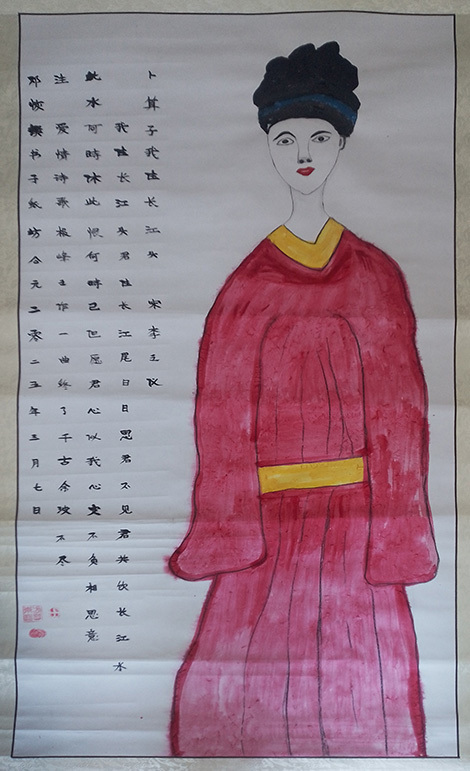 卜算子我住长江头 宋李之仪
我住长江头君住长江尾日日思君不见君共饮长江水
此水何時休此恨何時已但愿君心似我心定不负相思意
注 爱情诗歌极峰之作一曲终了千古余不尽
邓书于纸坊公元二零二五年三月七日